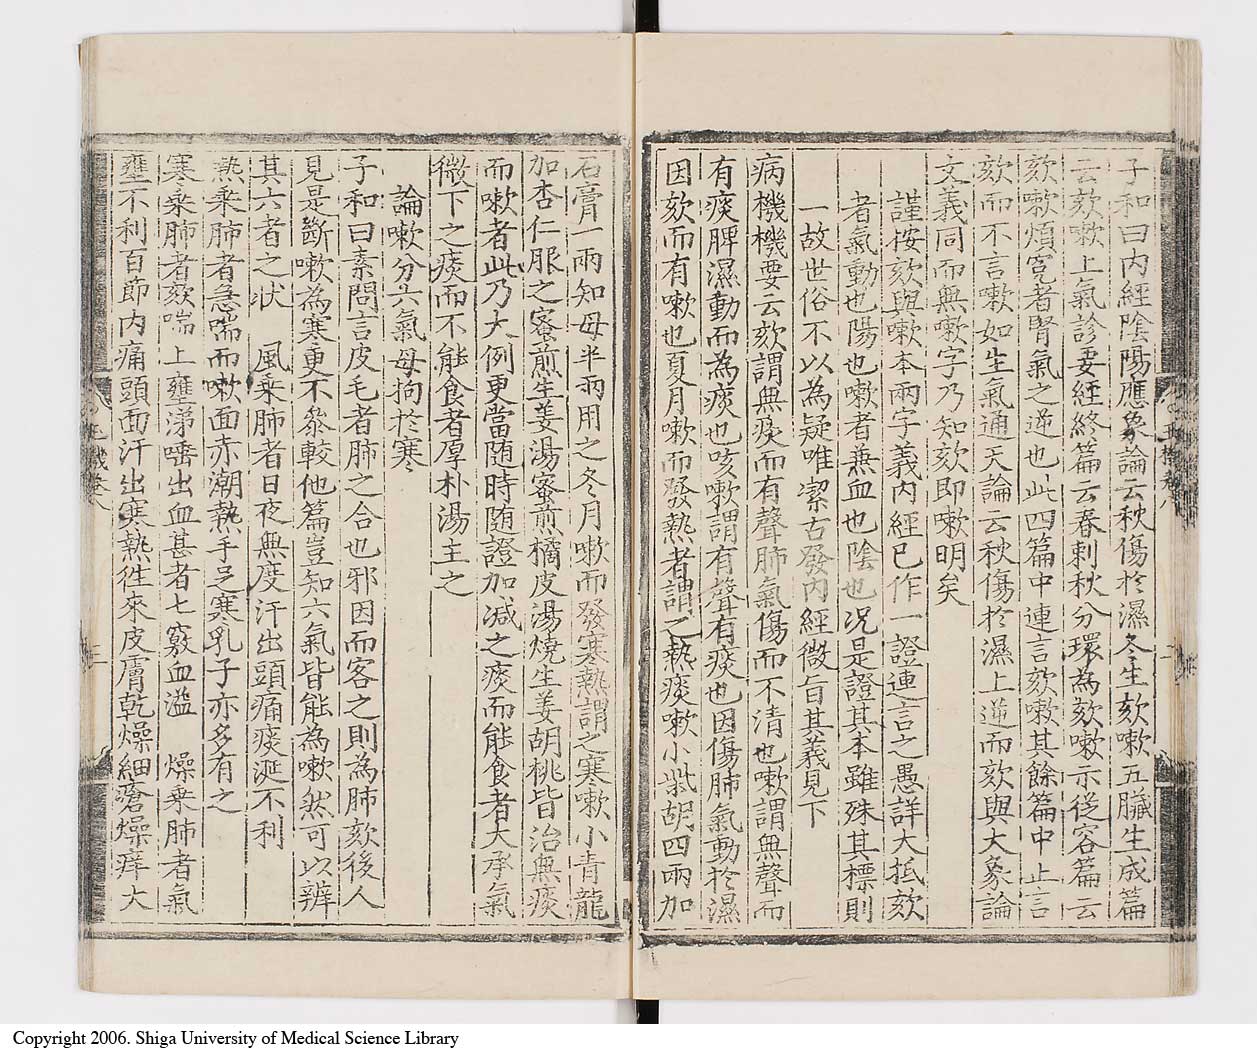 子和曰內經陰陽應象論云秋傷於濕冬生欬嗽五臟生成篇
云欬嗽上氣診要經終篇云春刺秋分環為欬嗽示從容篇云
欬嗽煩寃者腎氣之逆也此四篇中連言欬嗽其餘篇中止言
欬而不言嗽如生氣通天論云秋傷於濕上逆而欬與大象論
文義同而無嗽字乃知欬即嗽明矣
謹按欬與嗽本兩字義內經已作一證連言之愚詳大抵欬
者氣動也陽也嗽者兼血也陰也况是證其本雖殊其標則
一故世俗不以為疑唯潔古發內經微旨其義見下
病機機要云欬謂無痰而有聲肺氣傷而不清也嗽謂無聲而
有痰脾濕動而為痰也咳嗽謂有聲有痰也因傷肺氣動於濕
因欬而有嗽也夏月嗽而發熱者謂之熱痰嗽小柴胡四兩加
石膏一兩知母半兩用之冬月嗽而發寒熱謂之寒嗽小青龍
加杏仁服之蜜煎生姜湯蜜煎橘皮湯燒生姜胡桃皆治無痰
而嗽者此乃大例更當随時随證加减之痰而能食者大承氣
微下之痰而不能食者厚朴湯主之
論嗽分六氣母拘於寒
子和曰素問言皮毛者肺之合也邪因而客之則為肺欬後人
見是斷嗽為寒更不參較他篇豈知六氣皆能為嗽然可以辨
其六者之狀　風乘肺者日夜無度汗出頭痛痰涎不利
熱乘肺者急喘而嗽面赤潮熱手足寒乳子亦多有之
寒乘肺者欬喘上壅涕唾出血甚者七竅血溢　燥乘肺者氣
壅不利百節內痛頭面汗出寒熱徃來皮膚乾燥細瘡燥痒大
Copyright 2006. Shiga University of Medical Science Library